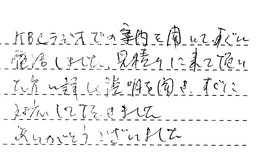 KBCラジオでの案内を聞いてすぐに
電話しました。見積りに来て頂い
た方に詳しく説明を聞き、すぐに
対応して下さました
ありがとうございました